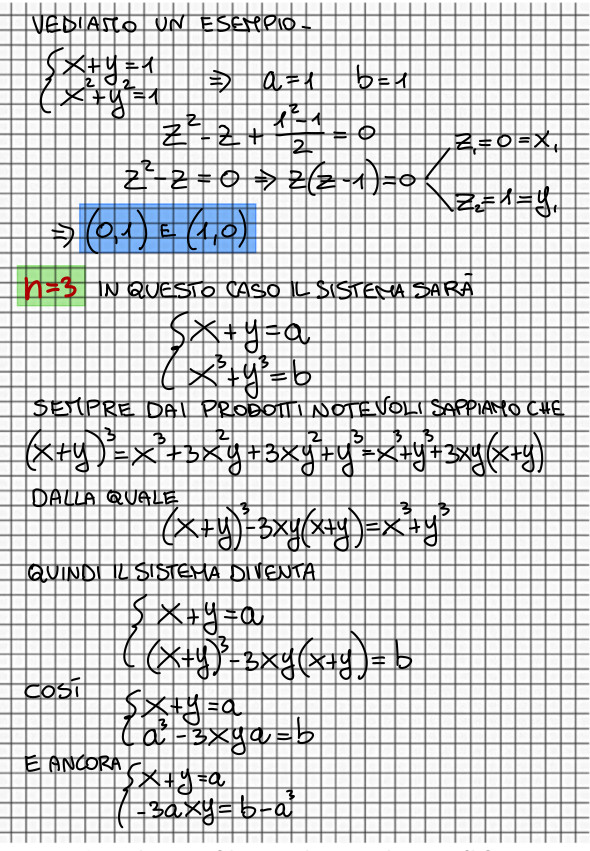 VEDIAMO UN ESEMPIO-
{ x+y=1
x²+y²=1 ⇒ a=1 b=1
z²-z+(1²-1)/2=0
z²-z=0 ⇒ z(z-1)=0
z₁=0=x₁
z₂=1=y₁
⇒ (0,1) E (1,0)
n=3 IN QUESTO CASO IL SISTEMA SARÀ
{ x+y=a
x³+y³=b
SEMPRE DAI PRODOTTI NOTEVOLI SAPPIAMO CHE
(x+y)³=x³+3x²y+3xy²+y³=x³+y³+3xy(x+y)
DALLA QUALE
(x+y)³-3xy(x+y)=x³+y³
QUINDI IL SISTEMA DIVENTA
{ x+y=a
(x+y)³-3xy(x+y)=b
COSÌ { x+y=a
a³-3xya=b
E ANCORA { x+y=a
-3axy=b-a³